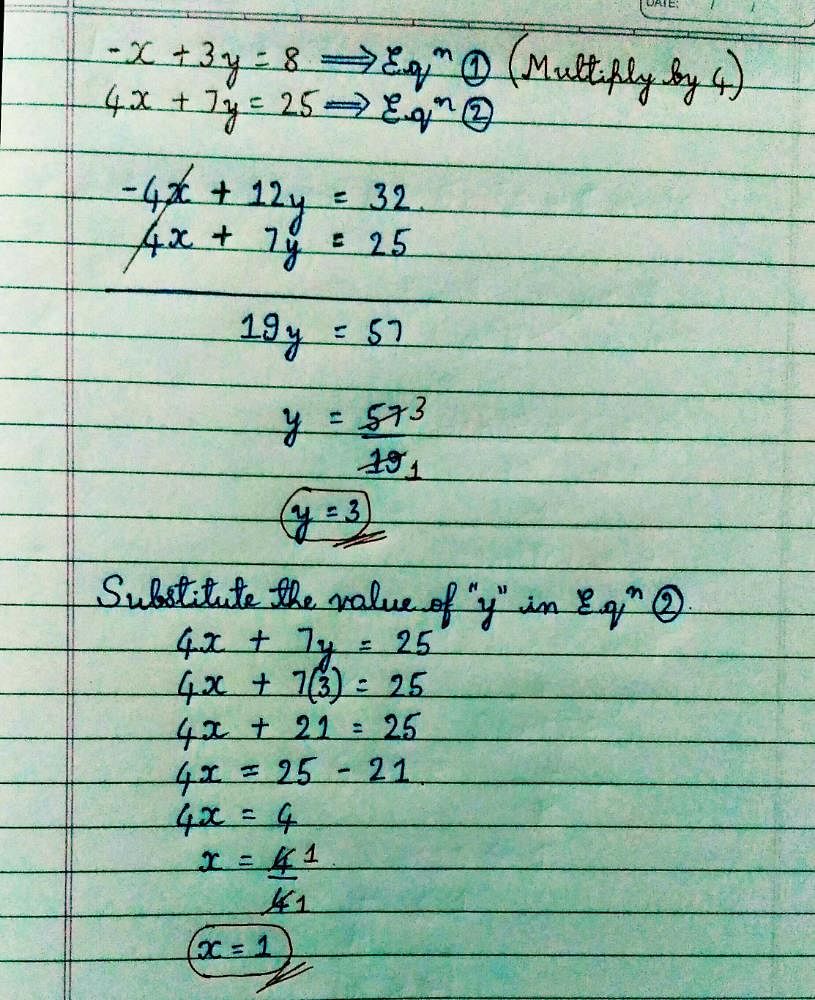 DATE: / /
-x + 3y = 8 ⟹ Eqⁿ ① (Multiply by 4)
4x + 7y = 25 ⟹ Eqⁿ ②
-4x + 12y = 32
4x + 7y = 25
19y = 57
y = 57/19 3 1
y = 3
Substitute the value of "y" in Eqⁿ ②.
4x + 7y = 25
4x + 7(3) = 25
4x + 21 = 25
4x = 25 - 21
4x = 4
x = 4/4 1 1
x = 1